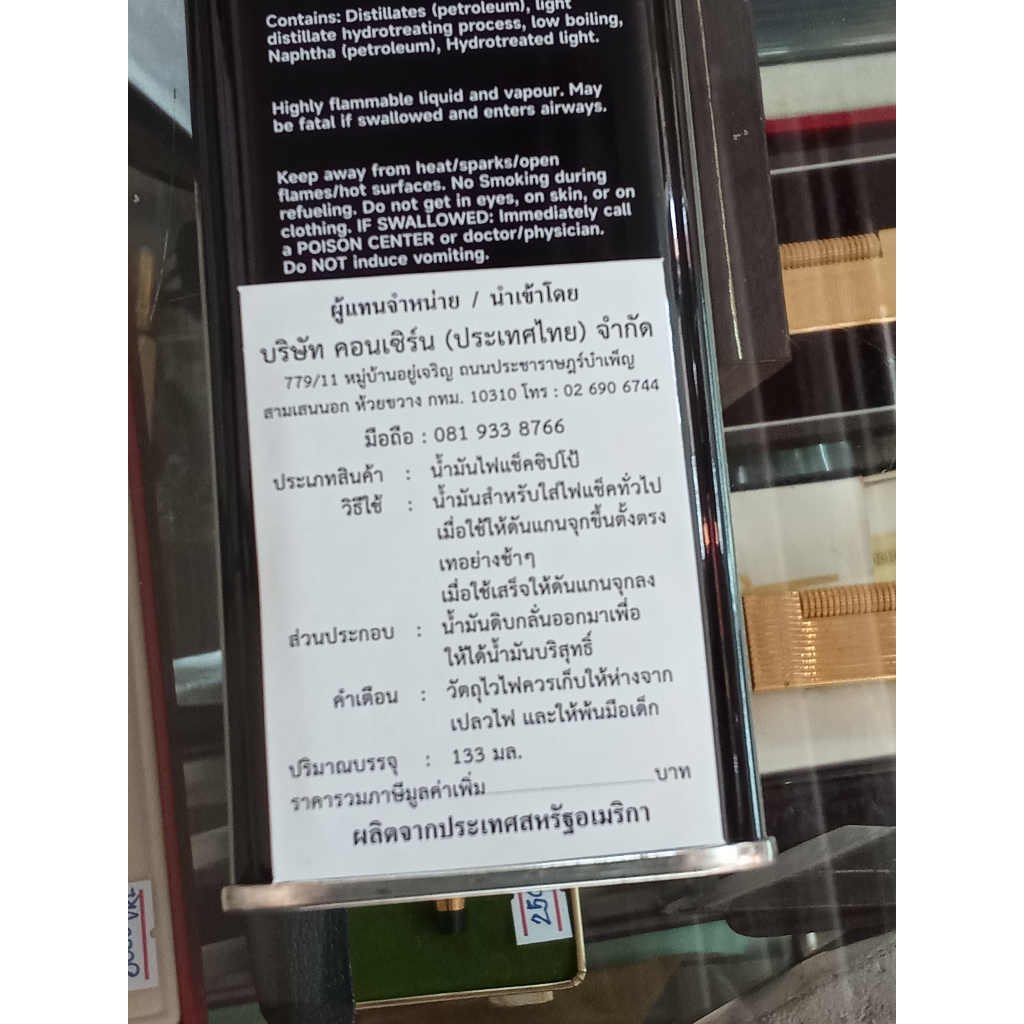 Contains: Distillates (petroleum), light
distillate hydrotreating process, low boiling,
Naphtha (petroleum), Hydrotreated light.
Highly flammable liquid and vapour. May
be fatal if swallowed and enters airways.
Keep away from heat/sparks/open
flames/hot surfaces. No Smoking during
refueling. Do not get in eyes, on skin, or on
clothing. IF SWALLOWED: Immediately call
a POISON CENTER or doctor/physician.
Do NOT induce vomiting.
ผู้แทนจำหน่าย / นำเข้าโดย
บริษัท คอนเซิร์น (ประเทศไทย) จำกัด
779/11 หมู่บ้านอยู่เจริญ ถนนประชาราษฎร์บำเพ็ญ
สามเสนนอก ห้วยขวาง กทม. 10310 โทร : 02 690 6744
มือถือ : 081 933 8766
ประเภทสินค้า : น้ำมันไฟแช็คซิปโป้
วิธีใช้ : น้ำมันสำหรับใส่ไฟแช็คทั่วไป
เมื่อใช้ให้ดันแกนจุกขึ้นตั้งตรง
เทอย่างช้าๆ
เมื่อใช้เสร็จให้ดันแกนจุกลง
ส่วนประกอบ : น้ำมันดิบกลั่นออกมาเพื่อ
ให้ได้น้ำมันบริสุทธิ์
คำเตือน : วัตถุไวไฟควรเก็บให้ห่างจาก
เปลวไฟ และให้พ้นมือเด็ก
ปริมาณบรรจุ : 133 มล.
ราคารวมภาษีมูลค่าเพิ่ม....................บาท
ผลิตจากประเทศสหรัฐอเมริกา